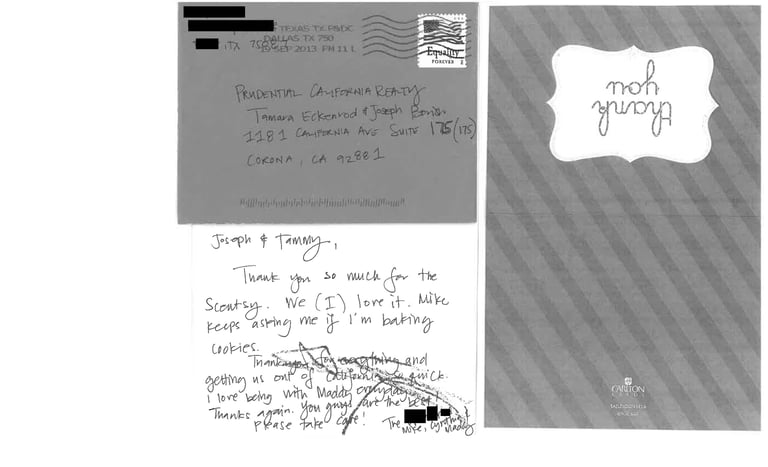 TEXAS TX P&DC
DALLAS TX 750
SEP 2013 PM 11 L
TX
Equality
FOREVER
PRUDENTIAL CALIFORNIA REALTY
Tamara Eckenrod & Joseph
1181 CALIFORNIA AVE SUITE 175 (175)
CORONA, CA 92881
Joseph & Tammy,
Thank you so much for the
Scentsy. We (I) love it. Mike
keeps asking me if I'm baking
cookies.
Thank you for everything and
getting us out of California so quick.
I love being with Maddy everyday.
Thanks again. You guys are the best!
Please take care! The
Mike, Cynthia &
Maddy
thank
you
CARLTON
CARDS